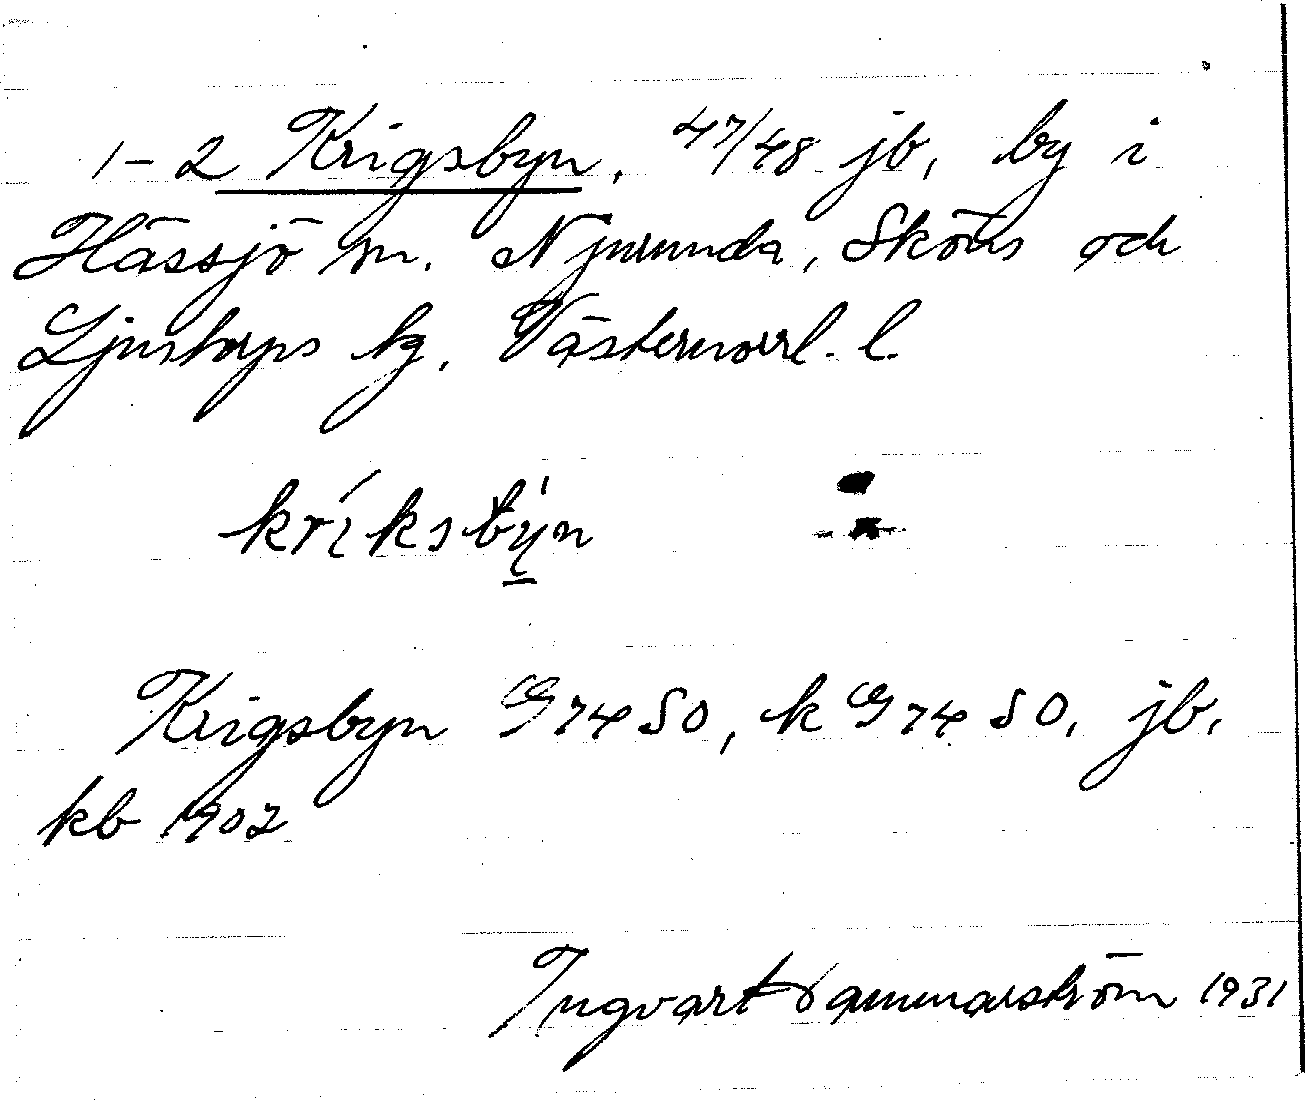 1-2 Krigsbyn, 47/48 jb, by i
Hässjö sn. Njurunda, Sköns och
Ljustorps tg. Västernorrl. l.
kríksbý̱n
Krigsbyn G 74 SO, k G 74 SO, jb,
kb 1902
Ingvart Dammarström 1931